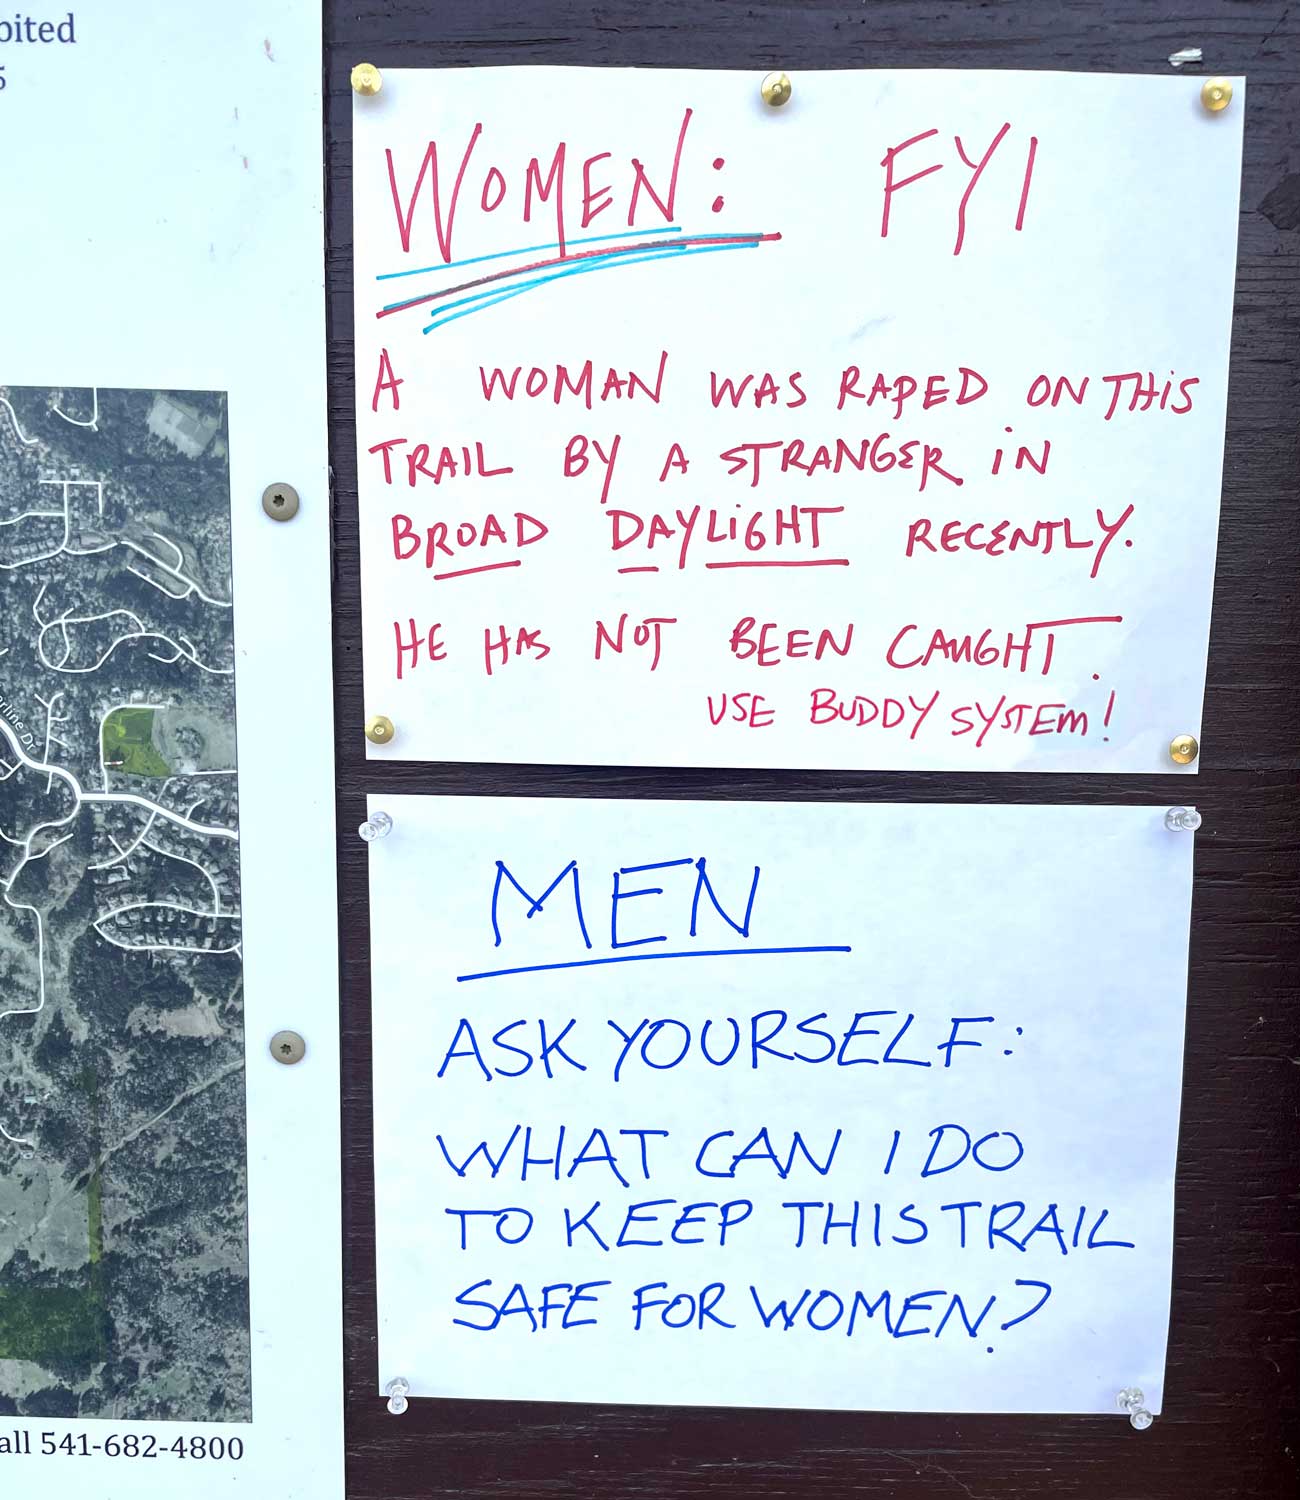 bited
5
erline Dr
all 541-682-4800
WOMEN: FYI
A WOMAN WAS RAPED ON THIS
TRAIL BY A STRANGER IN
BROAD DAYLIGHT RECENTLY.
HE HAS NOT BEEN CAUGHT.
USE BUDDY SYSTEM!
MEN
ASK YOURSELF:
WHAT CAN I DO
TO KEEP THIS TRAIL
SAFE FOR WOMEN?